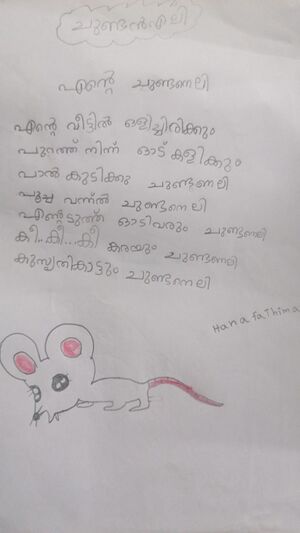 ചുണ്ടൻഎലി
എന്റെ ചുണ്ടണലി
എന്റെ വീട്ടിൽ ഒളിച്ചിരിക്കും
പുറത്ത് നിന്ന് ഓട് കളിക്കും
പാൽ കുടിക്കു ചുണ്ടണലി
പൂച്ച വന്നൽ ചുണ്ടനെലി
എന്റടുത്ത് ഓടിവരും ചുണ്ടണലി
കീ..കീ...കീ കരയും ചുണ്ടണലി
കുസൃതികാട്ടും ചുണ്ടനെലി
Hana faThima